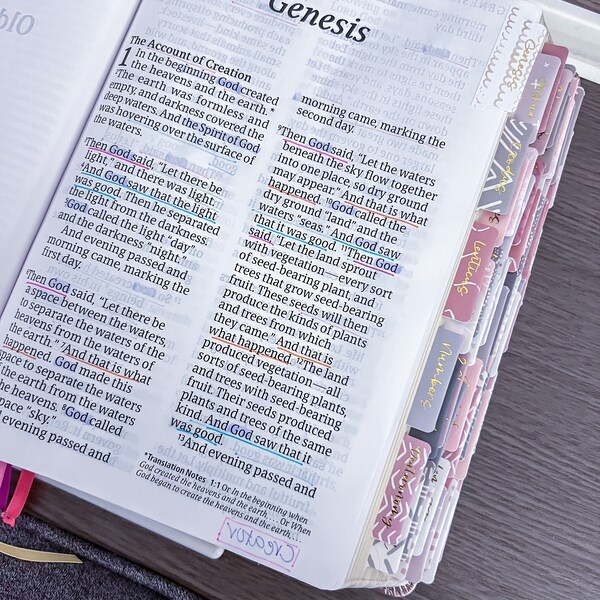 Genesis
The Account of Creation
1 In the beginning God created
the heavens and the earth.*
²The earth was formless and
empty, and darkness covered the
deep waters. And the Spirit of God
was hovering over the surface of
the waters.
³Then God said, “Let there be
light,” and there was light.
⁴And God saw that the light
was good. Then he separated
the light from the darkness.
⁵God called the light “day”
and the darkness “night.”
And evening passed and
morning came, marking the
first day.
⁶Then God said, “Let there be
a space between the waters,
to separate the waters of the
heavens from the waters of
the earth.” ⁷And that is what
happened. God made this
space to separate the waters
of the earth from the waters
of the heavens. ⁸God called
the space “sky.”
And evening passed and
morning came, marking the
second day.
⁹Then God said, “Let the waters
beneath the sky flow together
into one place, so dry ground
may appear.” And that is what
happened. ¹⁰God called the
dry ground “land” and the
waters “seas.” And God saw
that it was good. ¹¹Then God
said, “Let the land sprout
with vegetation—every sort
of seed-bearing plant, and
trees that grow seed-bearing
fruit. These seeds will then
produce the kinds of plants
and trees from which
they came.” And that is
what happened. ¹²The land
produced vegetation—all
sorts of seed-bearing plants,
and trees with seed-bearing
fruit. Their seeds produced
plants and trees of the same
kind. And God saw that it
was good.
¹³And evening passed and
*Translation Notes 1:1 Or In the beginning when
God created the heavens and the earth, . . . Or When
God began to create the heavens and the earth, . . .
Creator
Genesis
Exodus
Leviticus
Numbers
Deuteronomy
Old